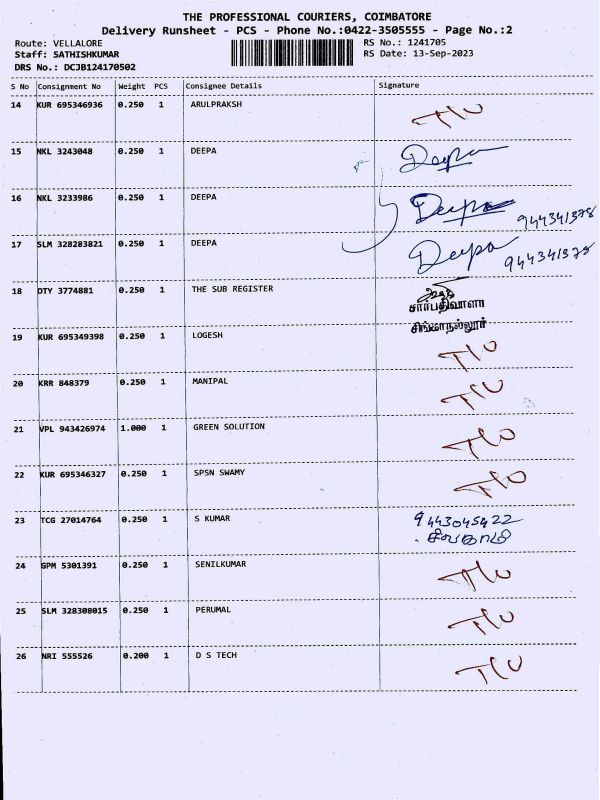 THE PROFESSIONAL COURIERS, COIMBATORE
Delivery Runsheet - PCS - Phone No.:0422-3505555 - Page No.:2
Route: VELLALORE RS No.: 1241705
Staff: SATHISHKUMAR RS Date: 13-Sep-2023
DRS No.: DCJB124170502
S No Consignment No Weight PCS Consignee Details Signature
14 KUR 695346936 0.250 1 ARULPRAKSH T/O
15 NKL 3243048 0.250 1 DEEPA Deepa
16 NKL 3233986 0.250 1 DEEPA Deepa
944341378
17 SLM 328283821 0.250 1 DEEPA Deepa 944341378
18 OTY 3774881 0.250 1 THE SUB REGISTER
சார்பதிவாளர்
சிங்காநல்லூர்
19 KUR 695349398 0.250 1 LOGESH T/O
20 KRR 848379 0.250 1 MANIPAL T/O
21 VPL 943426974 1.000 1 GREEN SOLUTION T/O
22 KUR 695346327 0.250 1 SPSN SWAMY T/O
23 TCG 27014764 0.250 1 S KUMAR 9443045422
சிவகாமி
24 GPM 5301391 0.250 1 SENILKUMAR T/O
25 SLM 328308015 0.250 1 PERUMAL T/O
26 NRI 555526 0.200 1 D S TECH T/O